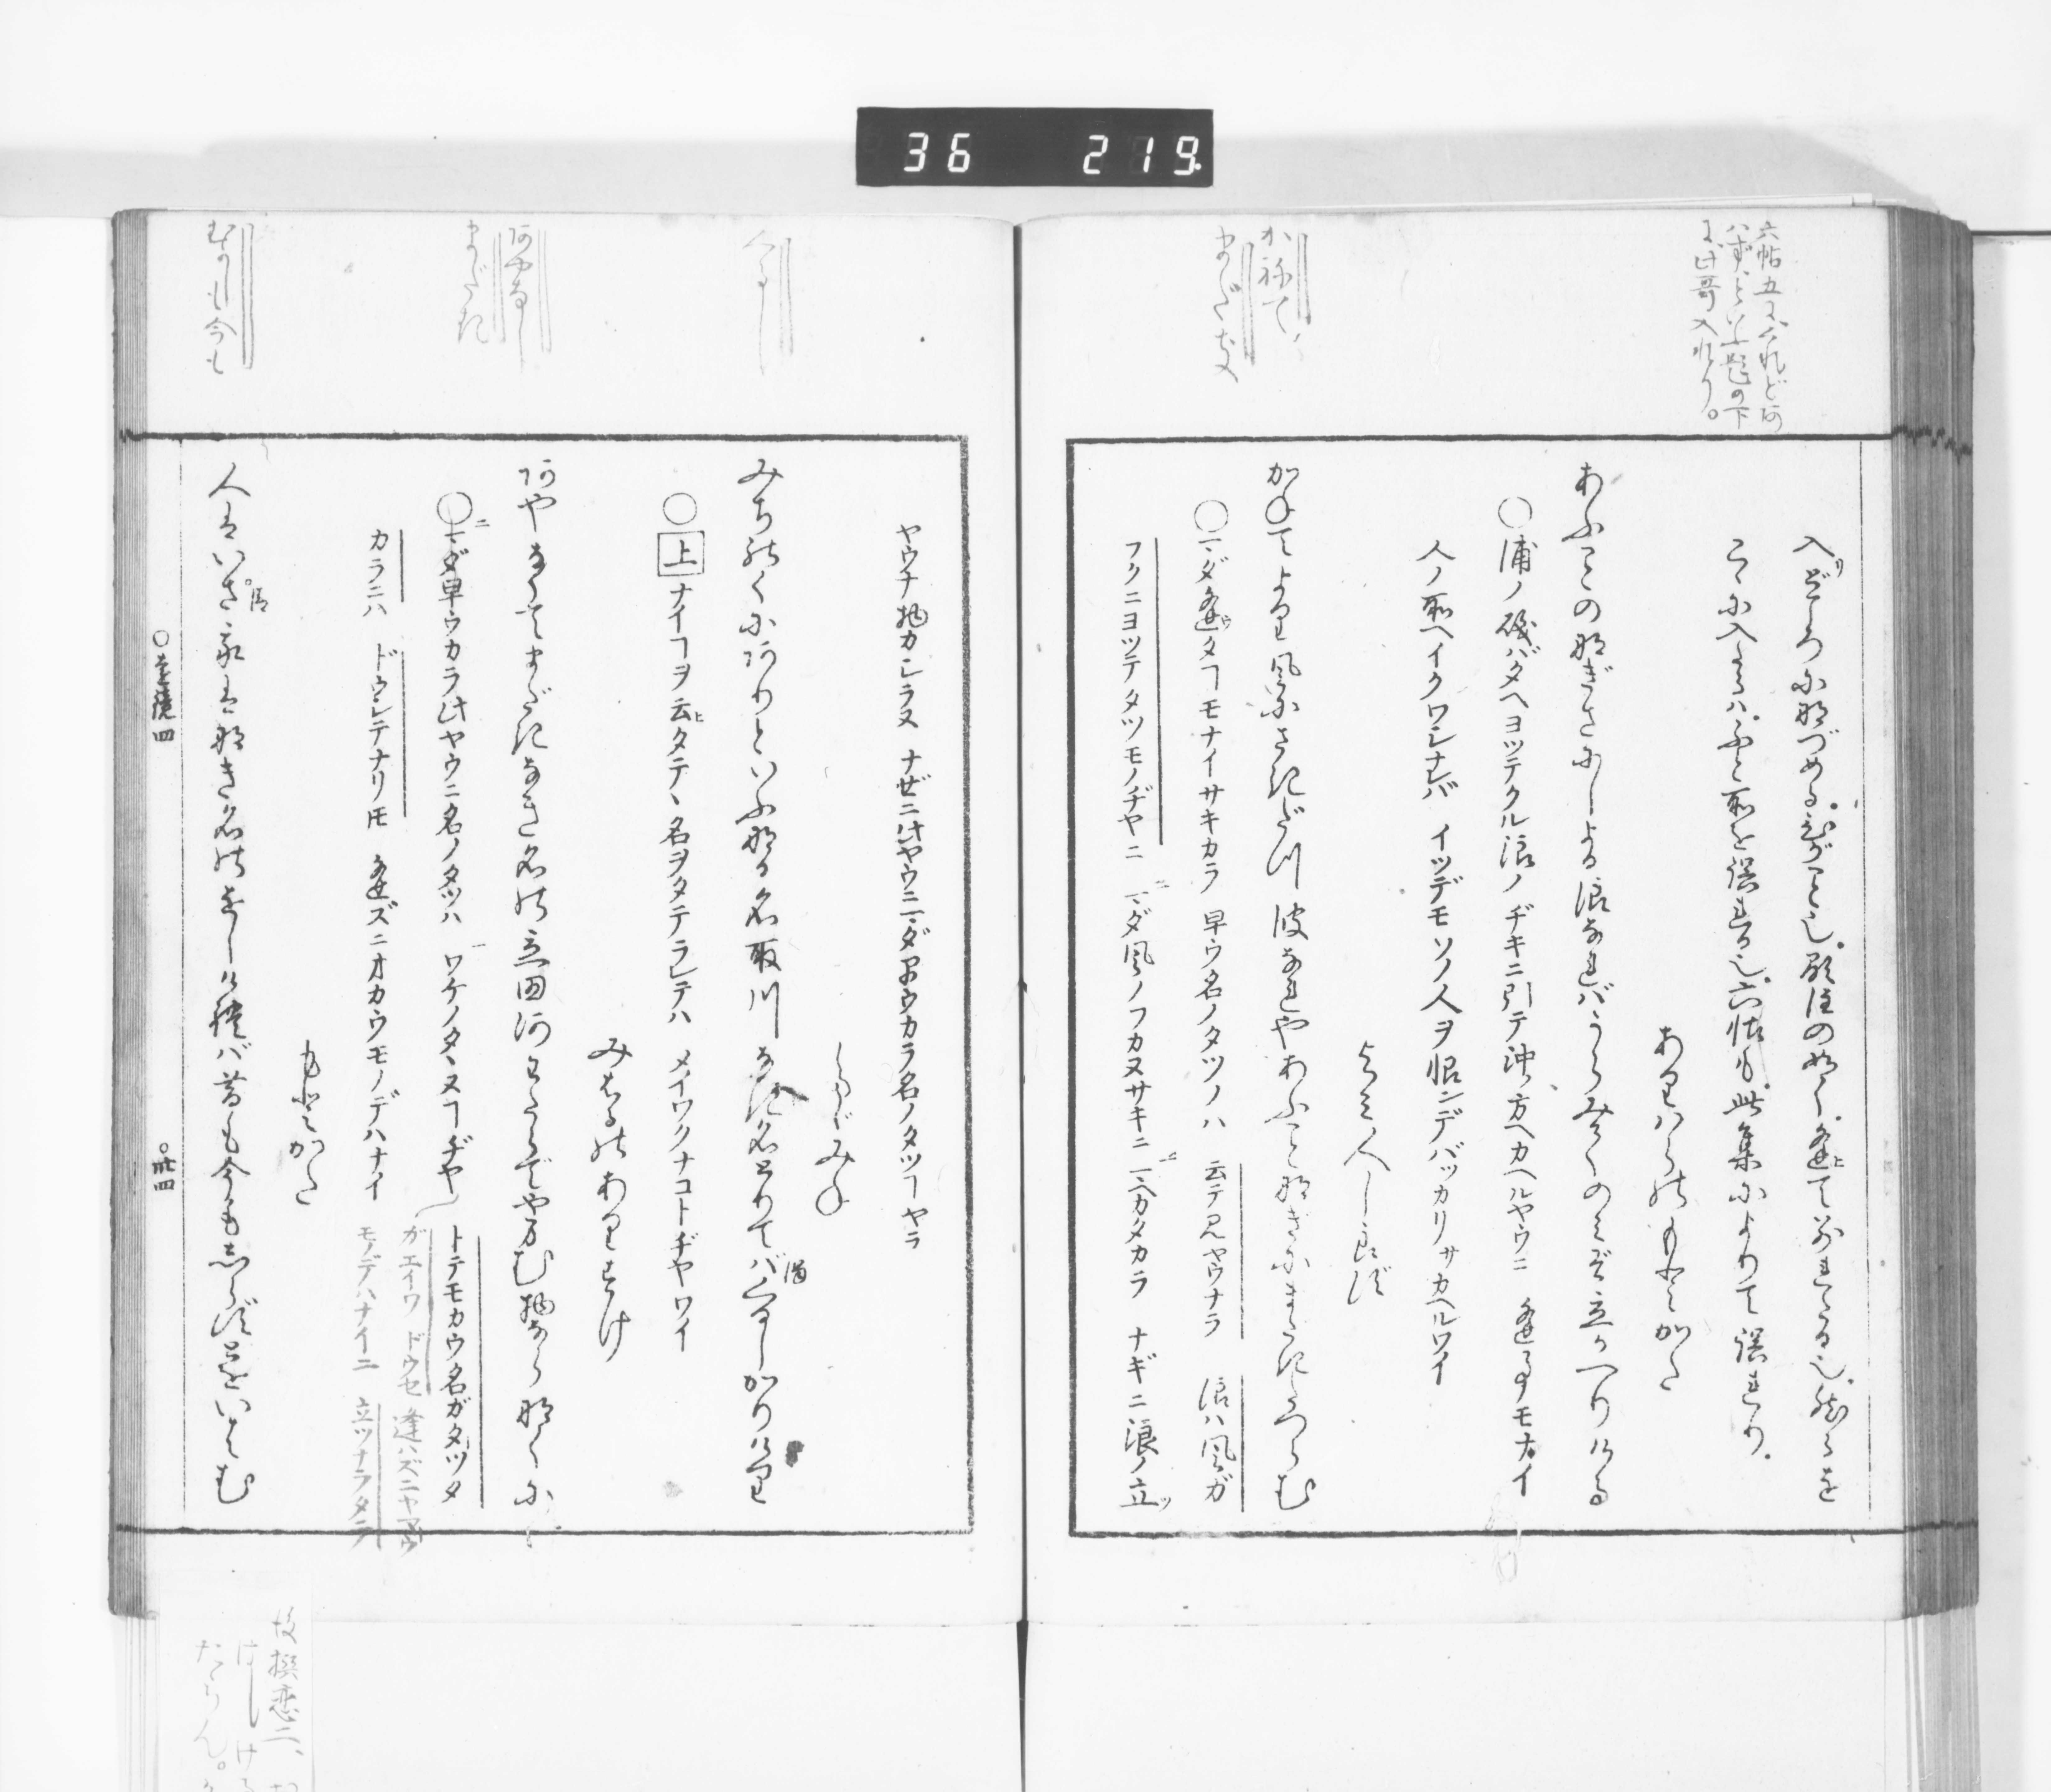 36 219
六帖五に、くれどあ
はず、といふ題の下
に、此哥入れり。
かねて
まだき
入りどころにかづめる。ひがことし。顕注のめく。逢ひて別れたる也。然るを
こゝに入たるハ。ふと所を誤れる也。六帖も。此集によりて誤れり。
ありハらのもとかた
あふことのなぎさにしよる浪なれバうらみてのミぞ立かへりける
○浦ノ磯バタヘヨツテクル浪ノヂキニ引テ沖ノ方ヘカヘルヤウニ 逢フ事モナイ
人ノ所ヘイクワシナレバ イツデモソノ人ヲ恨ンデバツカリサカヘルワイ
よミ人しらず
かねてより風にさきだつ波なれやあふことなぎにまだき立らむ
○マダ逢ウタヿモナイサキカラ 早ウ名ノタツノハ 云テ見ヤウナラ 浪ハ風ガ
フクニヨツテタツモノヂヤニ マダ風ノフカヌサキニ マヘカタカラ ナギニ浪ノ立ツ
人なし
あやなし
まだき
むかしも今も
ヤウナ物カシラヌ ナゼニ此ヤウニマダ早ウカラ名ノタツヿヤラ
たゞみね
みちのくにありといふなる名取川なき名とりてバくるしかりけり
○上ナイヿヲ云ヒタテヽ名ヲタテラレテハ メイワクナコトヂヤワイ
みはるのありすけ
あやなくてまだきなき名の立田河わたらでやまむ物ならなくに
○マダ早ウカラ此ヤウニ名ノタツハ ワケノタヽヌヿヂヤ トテモカウ名ガタツタ
カラニハ ドウシテナリトモ 逢ズニオカウモノデハナイ
ガエイワ ドウセ 逢ハズニヤマウ
モノデハナイニ 立ツナラタテ
もとかた
人はいさ我はなき名のをしけれバ昔も今もしらずとをいはむ
○遠鏡四
○卅四
後撰恋二、